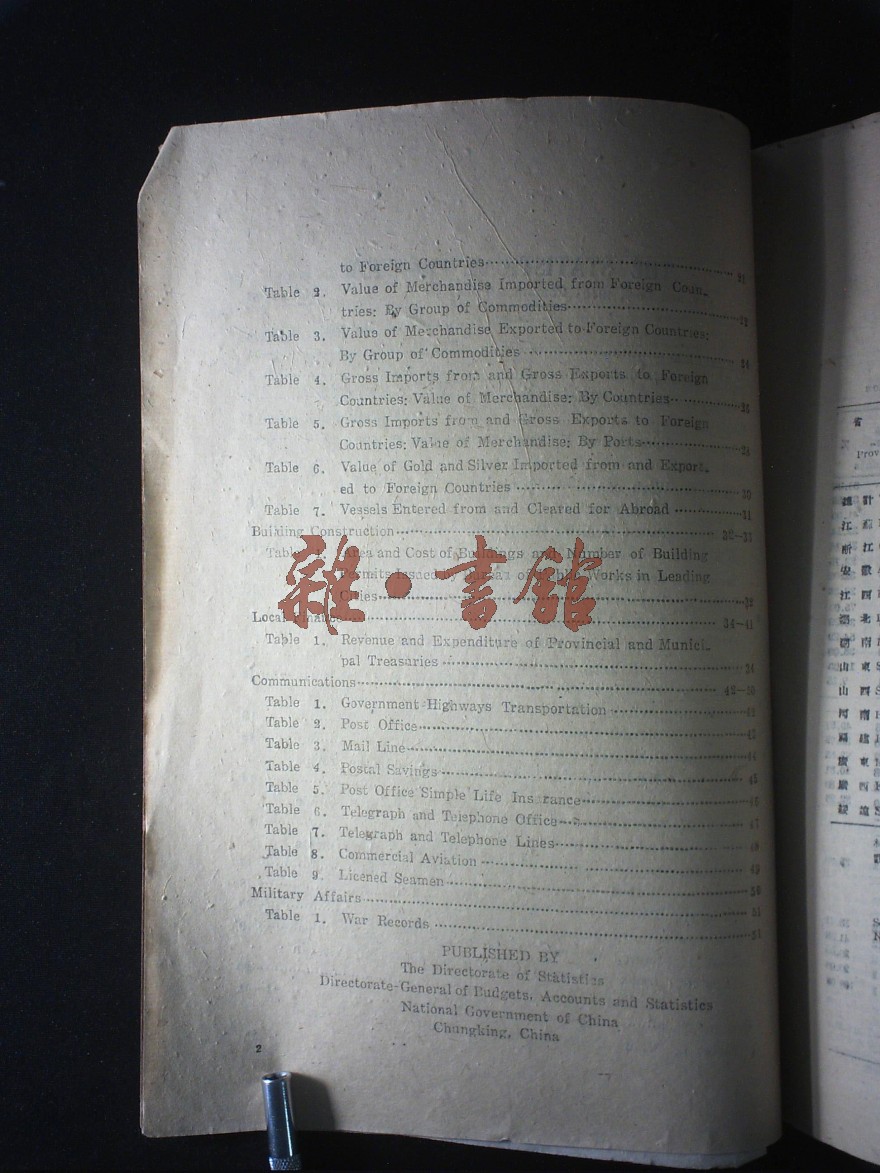 to Foreign Countries
Table 2. Value of Merchandise Imported from Foreign Coun-
tries: By Group of Commodities
Table 3. Value of Merchandise Exported to Foreign Countries:
By Group of Commodities 24
Table 4. Gross Imports from and Gross Exports to Foreign
Countries: Value of Merchandise: By Countries
Table 5. Gross Imports from and Gross Exports to Foreign
Countries: Value of Merchandise: By Ports
Table 6. Value of Gold and Silver Imported from and Export-
ed to Foreign Countries 30
Table 7. Vessels Entered from and Cleared for Abroad 31
Building Construction
Table and Cost of Buildings and Number of Building
Works in Leading
32
Local 34-41
Table 1. Revenue and Expenditure of Provincial and Munici-
pal Treasuries 34
Communications 42-50
Table 1. Government Highways Transportation 42
Table 2. Post Office 43
Table 3. Mail Line 44
Table 4. Postal Savings 45
Table 5. Post Office Simple Life Insurance 46
Table 6. Telegraph and Telephone Office 47
Table 7. Telegraph and Telephone Lines 48
Table 8. Commercial Aviation 49
Table 9. Licened Seamen 50
Military Affairs 51
Table 1. War Records 51
PUBLISHED BY
The Directorate of Statistics
Directorate-General of Budgets, Accounts and Statistics
National Government of China
Chungking, China
2
雜·書館
省
Prov
總計
江蘇
浙江
安徽
江西
湖北
湖南
山東
山西
河南
福建
廣東
廣西
綏遠